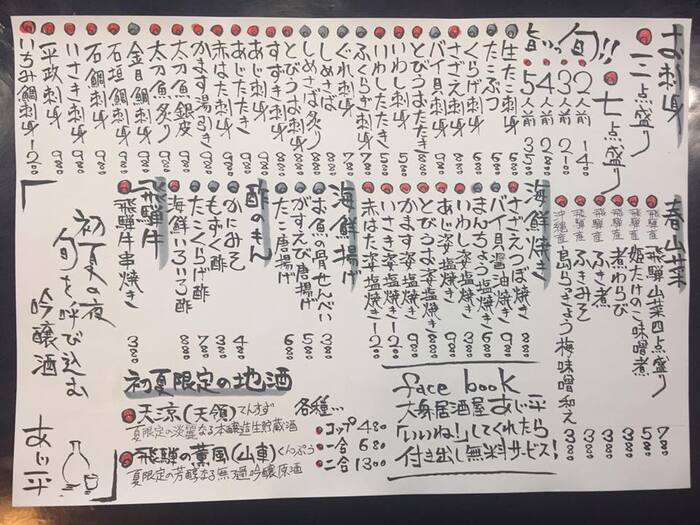 お刺身
三点盛り
七点盛り
旬!!
旨いっ
2人前 1400
3人前 2100
4人前 2800
5人前 3500
生たこ刺身
たこぶつ
くらげ刺身
さざえ刺身
バイ貝刺身
とびうおたたき
いわし刺身
いわしたたき
ふくらぎ刺身
ぐれ刺身
しめさば
しめさば炙り
とびうお刺身
すずき刺身
あじ刺身
あじたたき
赤はた刺身
かます湯引き
太刀魚銀皮
太刀魚炙り
金目鯛刺身
石垣鯛刺身
石鯛刺身
いさき刺身
平政刺身
いちみ鯛刺身 1200
春山菜
飛騨産 「飛騨」山菜四点盛り 780
飛騨産 姫たけのこ味噌煮 580
飛騨産 煮わらび 380
飛騨産 ふき煮 380
飛騨産 ふきみそ 380
沖縄産 島らっきょう梅味噌和え 380
海鮮焼き
さざえつぼ焼き 880
バイ貝醤油焼き 680
まんちょう塩焼き 680
いわし姿塩焼き 380
あじ姿塩焼き 980
とびうお姿塩焼き 880
かます姿塩焼き 980
いさき姿塩焼き 1200
赤はた姿塩焼き 1200
海鮮揚げ
お魚の骨せんべい 380
がすえび唐揚げ 580
たこ唐揚げ 680
酢のもん
かにみそ 480
もずく酢 380
たこくらげ酢 780
海鮮いろいろ酢 880
「飛騨牛」
飛騨牛串焼き 380
「初夏の夜
旬を呼び込む
吟醸酒
あじ平」
初夏限定の地酒
天涼(天領)てんすず
夏限定の淡麗なる本醸造生貯蔵酒
飛騨の薫風(山車)くんぷう
夏限定の芳醇なる無ろ過吟醸原酒
各種…
コップ 480
一合 680
二合 1300
face book
大衆居酒屋あじ平
「いいね!」してくれたら
付き出し無料サービス!